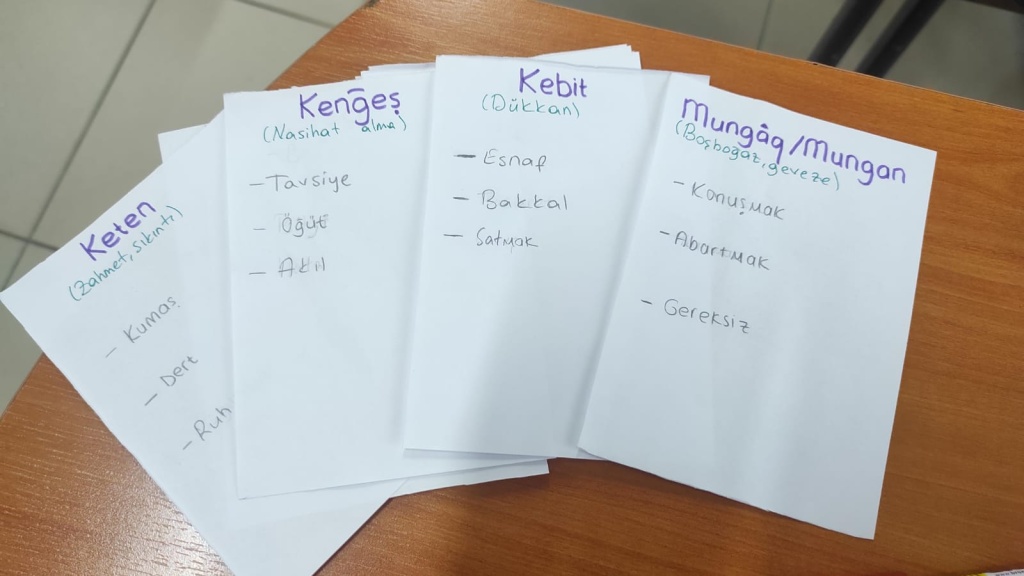 Keten
(Zahmet, sıkıntı)
– Kumaş
– Dert
– Ruh
Kenğeş
(Nasihat alma)
– Tavsiye
– Öğüt
– Akıl
Kebit
(Dükkan)
– Esnaf
– Bakkal
– Satmak
Mungâq/Mungan
(Boşboğaz, geveze)
– Konuşmak
– Abartmak
– Gereksiz